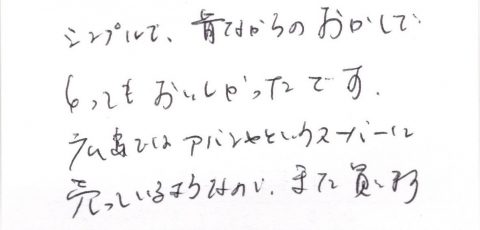 シンプルで、昔ながらのおかしで
とってもおいしかったです.
広島ではアバンセというスーパーに
売っているようなので、また買いまs